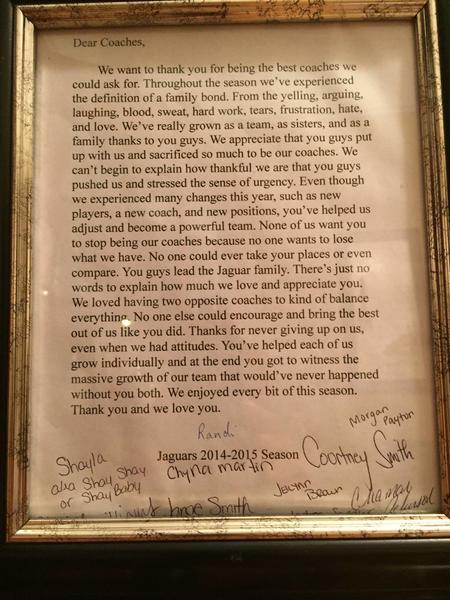 Dear Coaches,
We want to thank you for being the best coaches we
could ask for. Throughout the season we've experienced
the definition of a family bond. From the yelling, arguing,
laughing, blood, sweat, hard work, tears, frustration, hate,
and love. We've really grown as a team, as sisters, and as a
family thanks to you guys. We appreciate that you guys put
up with us and sacrificed so much to be our coaches. We
can't begin to explain how thankful we are that you guys
pushed us and stressed the sense of urgency. Even though
we experienced many changes this year, such as new
players, a new coach, and new positions, you've helped us
adjust and become a powerful team. None of us want you
to stop being our coaches because no one wants to lose
what we have. No one could ever take your places or even
compare. You guys lead the Jaguar family. There's just no
words to explain how much we love and appreciate you.
We loved having two opposite coaches to kind of balance
everything. No one else could encourage and bring the best
out of us like you did. Thanks for never giving up on us,
even when we had attitudes. You've helped each of us
grow individually and at the end you got to witness the
massive growth of our team that would've never happened
without you both. We enjoyed every bit of this season.
Thank you and we love you.
Randi
Morgan
Payton
Jaguars 2014-2015 Season
Courtney Smith
Shayla
aka Shay Shay
or ShayBaby
Chyna martin
Jalynn
Brown
Smith